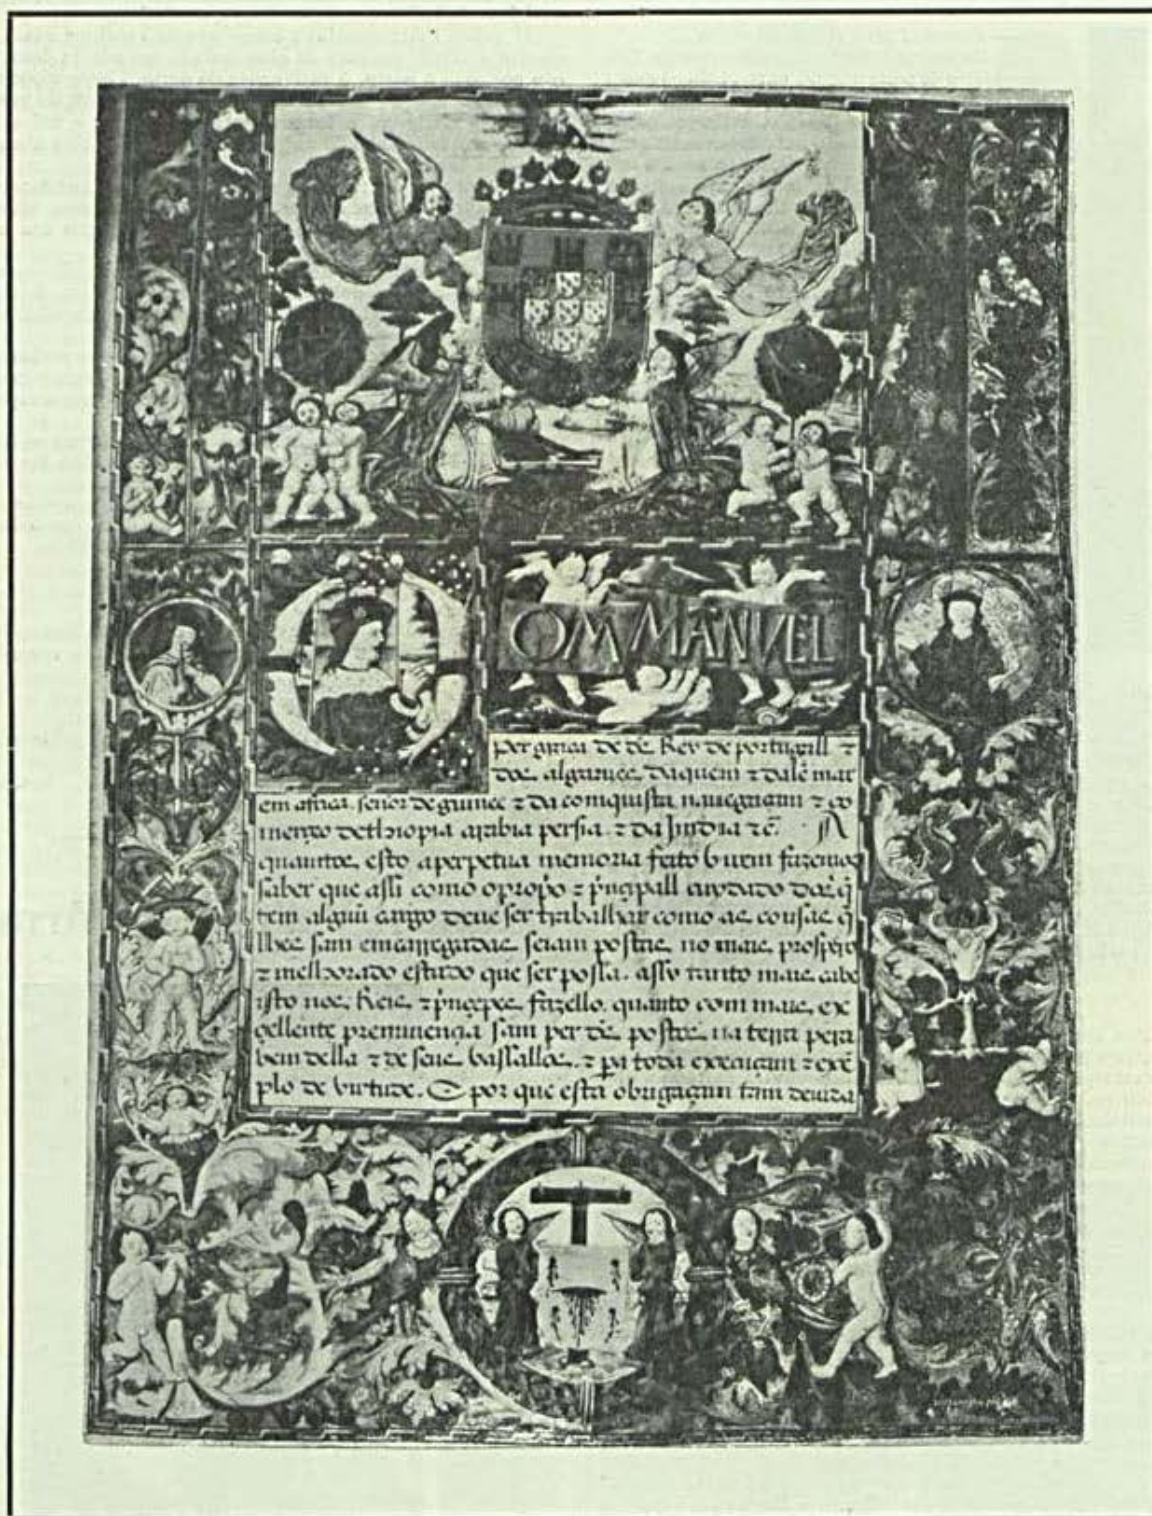 DOM MANVEL
per graça de ds̃ Rey de portugall ⁊
dos algarues daquem ⁊ dalẽ mar
em africa. señor de guinee ⁊ da comquista nauegaçam ⁊ co
merço dethiopia arabia persia. ⁊ da Jmdia ⁊c̃. A
quantos esto aperpetua memoria feito birem fazemos
saber que assi como o propio ⁊ prinçipall cuydado dos q̃
tem alguũ cargo deue ser trabalhar como as cousas q̃
lhes sam emcarregadas seiam postas no mais prospero
⁊ melhorado estado que ser possa. assy tanto mais cabe
isto nos Reis ⁊ prinçepes fazello. quanto com mais ex
cellente preminença sam per ds̃ postos na terra pera
bem della ⁊ de seus bassallos. ⁊ pera toda execuçam ⁊ exẽ
plo de birtude. E por que esta obrigaçam tam deuida